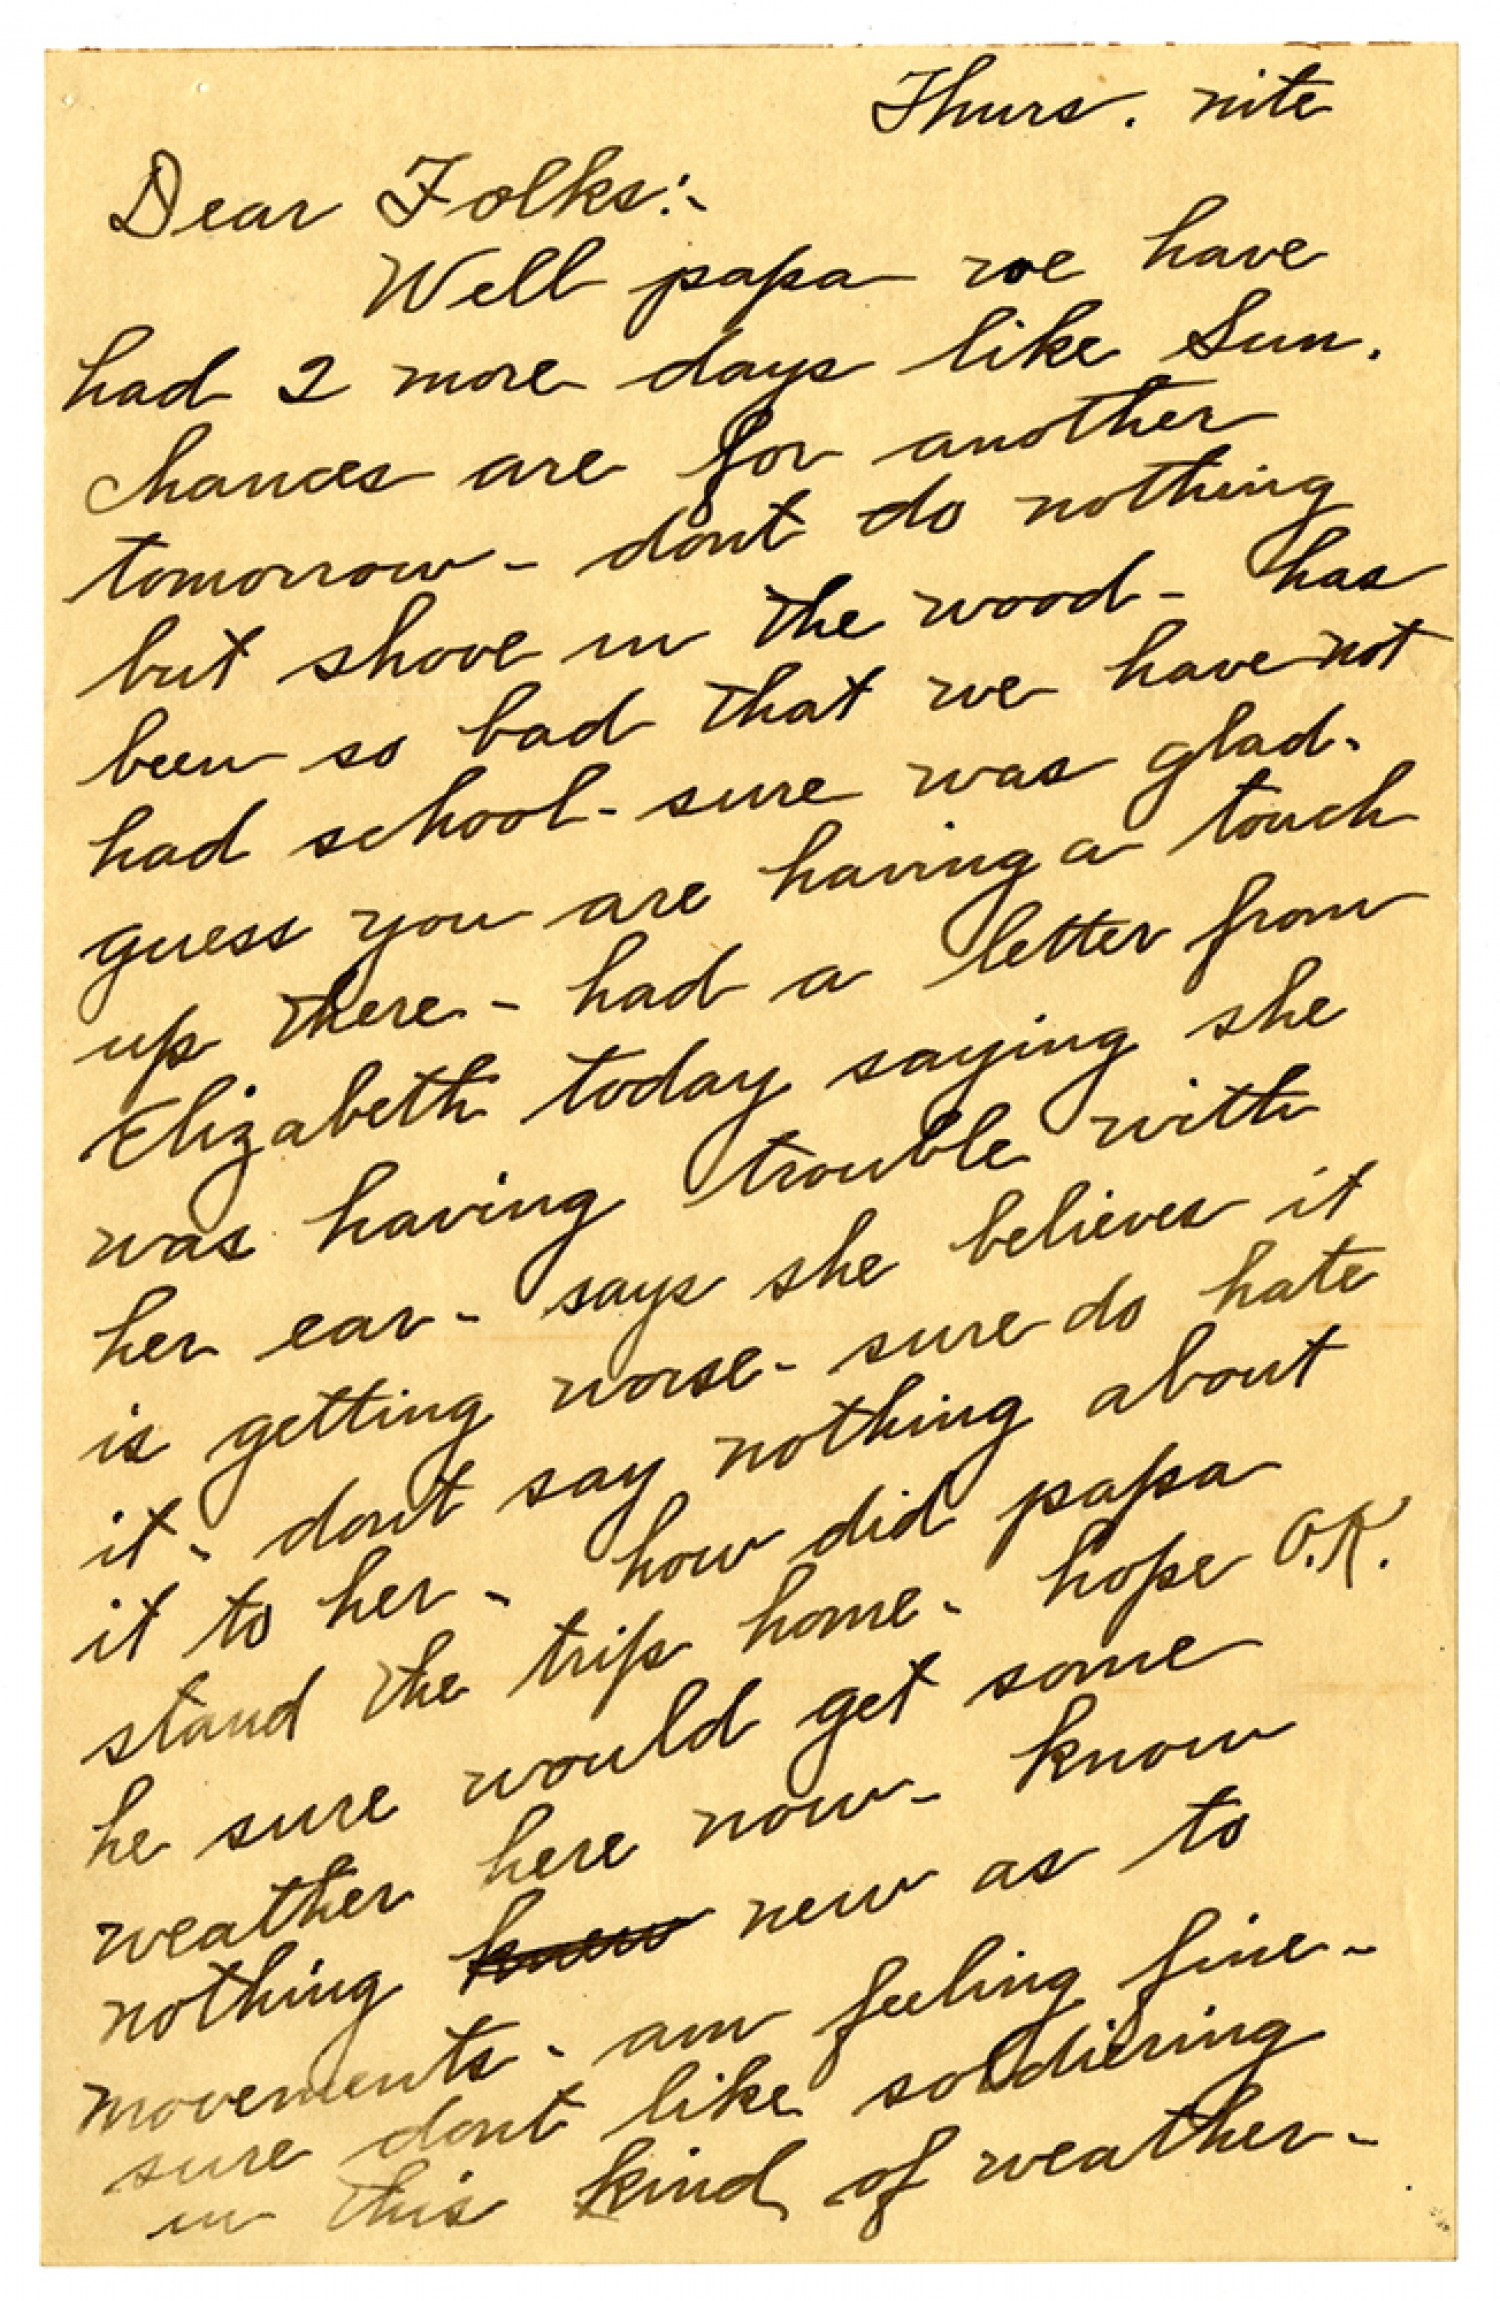 Thurs. nite
Dear Folks:-
Well papa we have
had 2 more days like Sun.
chances are for another
tomorrow - dont do nothing
but shove in the wood - has
been so bad that we have not
had school - sure was glad.
guess you are having a touch
up there - had a letter from
Elizabeth today saying she
was having trouble with
her ear - says she believes it
is getting worse - sure do hate
it - dont say nothing about
it to her - how did papa
stand the trip home - hope O.K.
he sure would get some
weather here now - know
nothing knew new as to
movements - am feeling fine -
sure dont like soldiering
in this kind of weather -